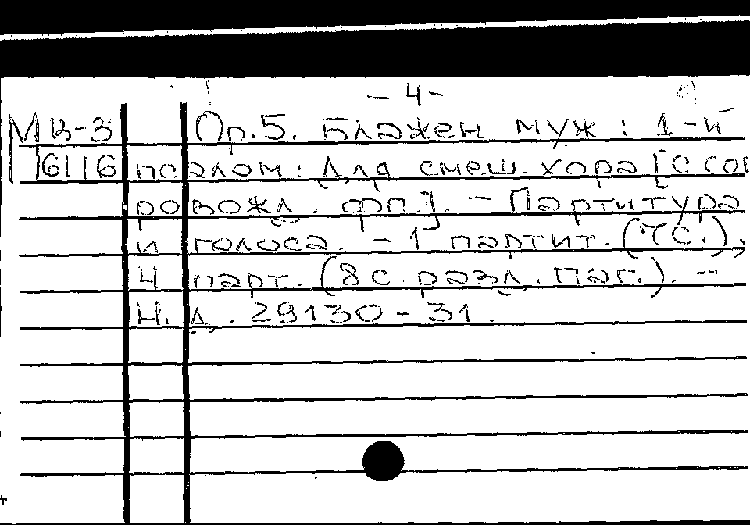 - 4 -
МВ-3 Ор.5. Блажен муж : 1-й
6116 псалом : Для смеш. хора [с соп
ровожд. фп.]. - Партитура
и голоса. - 1 партит. (7с.),
4 парт. (8 с. разд. паг.). -
Н.д. 29130-31.